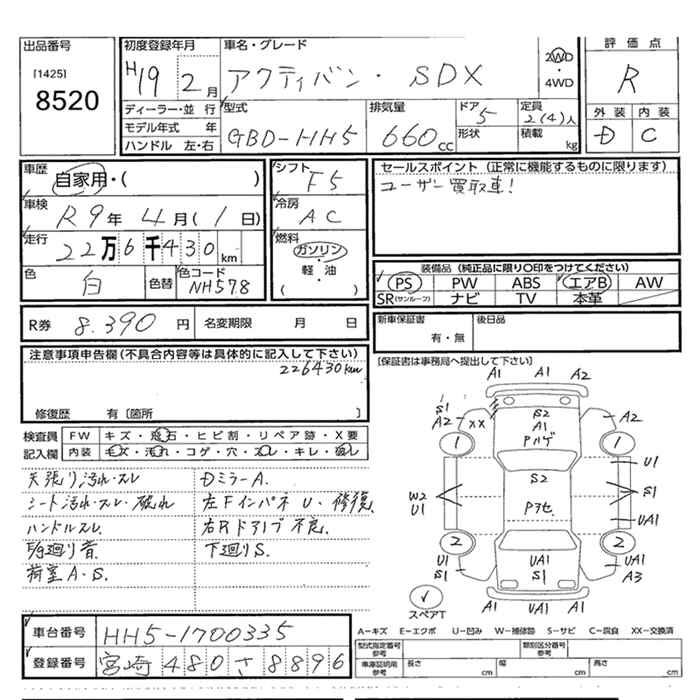 出品番号
[1425]
8520
初度登録年月
H19 2月
車名・グレード
アクティバン・ SDX
2WD
・
4WD
評価点
R
ディーラー・並 行
モデル年式 年
ハンドル 左・右
型式
GBD-HH5
排気量
660cc
ドア
5
形状
定員
2(4)人
積載
kg
外装 内装
D C
車歴
自家用・( )
車検
R9年 4月(1日)
走行
22万6千430km
色
白
色替
色コード
NH578
シフト
F5
冷房
AC
燃料
ガソリン
・
軽・油
( )
セールスポイント (正常に機能するものに限ります)
ユーザー買取車!
装備品 (純正品に限り〇印をつけてください)
PS PW ABS エアB AW
SR(サンルーフ) ナビ TV 本革
R券 8.390円 名変期限 月 日
新車保証書
有・無
後日品
[保証書は事務局へ提出して下さい]
注意事項申告欄(不具合内容等は具体的に記入して下さい)
226430km
修復歴 有[箇所 ]
検査員
記入欄
FW キズ・飛石・ヒビ割・リペア跡・X要
内装 キズ・汚れ・コゲ・穴・スレ・キレ・破レ
天張り汚れ・スレ
シート汚れ・スレ・破れ
ハンドルスレ
F/G廻り音
荷室A・S.
DミラーA.
左Fインパネ U・修復
右Rドアノブ不良.
下廻りS.
A1 A1 A2
S1
A2 XX
S2
A1
Pハゲ
A2
1 1
U1
S2
W2
U1
S1
Pヨセ
UA1
2 2
U1
S1
UA1
S1
UA1
A3
A1 UA1 A1
スペアT
車台番号 HH5-1700335
登録番号 宮崎 480 さ 8896
A-キズ E-エクボ U-凹み W-補修跡 S-サビ C-腐食 XX-交換済
型式指定番号
参考
類別区分番号
参考
車庫証明用
参考
長さ cm 幅 cm 高さ cm